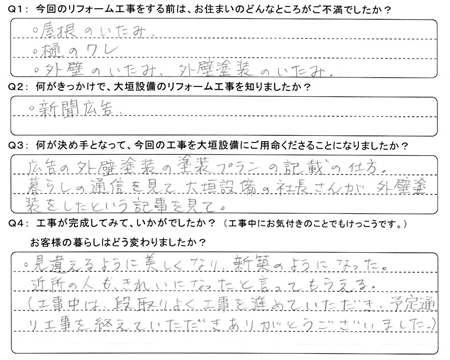 Q1： 今回のリフォーム工事をする前は、お住まいのどんなところがご不満でしたか？
・屋根のいたみ.
・樋のワレ
・外壁のいたみ. 外壁塗装のいたみ.
Q2： 何がきっかけで、大垣設備のリフォーム工事を知りましたか？
・新聞広告.
Q3： 何が決め手となって、今回の工事を大垣設備にご用命くださることになりましたか？
広告の外壁塗装の塗装プランの記載の仕方。
暮らしの通信を見て大垣設備の社長さんが、外壁塗
装をしたという記事を見て。
Q4： 工事が完成してみて、いかがでしたか？（工事中にお気付きのことでもけっこうです。）
お客様の暮らしはどう変わりましたか？
・見違えるように美しくなり、新築のようになった。
近所の人も、きれいになったと言ってもらえる。
（工事中は、段取りよく工事を進めていただき、予定通
り工事を終えていただきありがとうございました。）